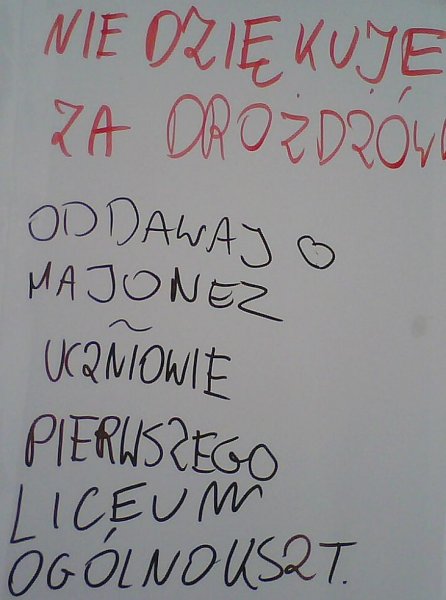 NIE DZIĘKUJE
ZA DROŻDŻÓW
ODDAWAJ
MAJONEZ
UCZNIOWIE
PIERWSZEGO
LICEUM
OGÓLNOKSZT.